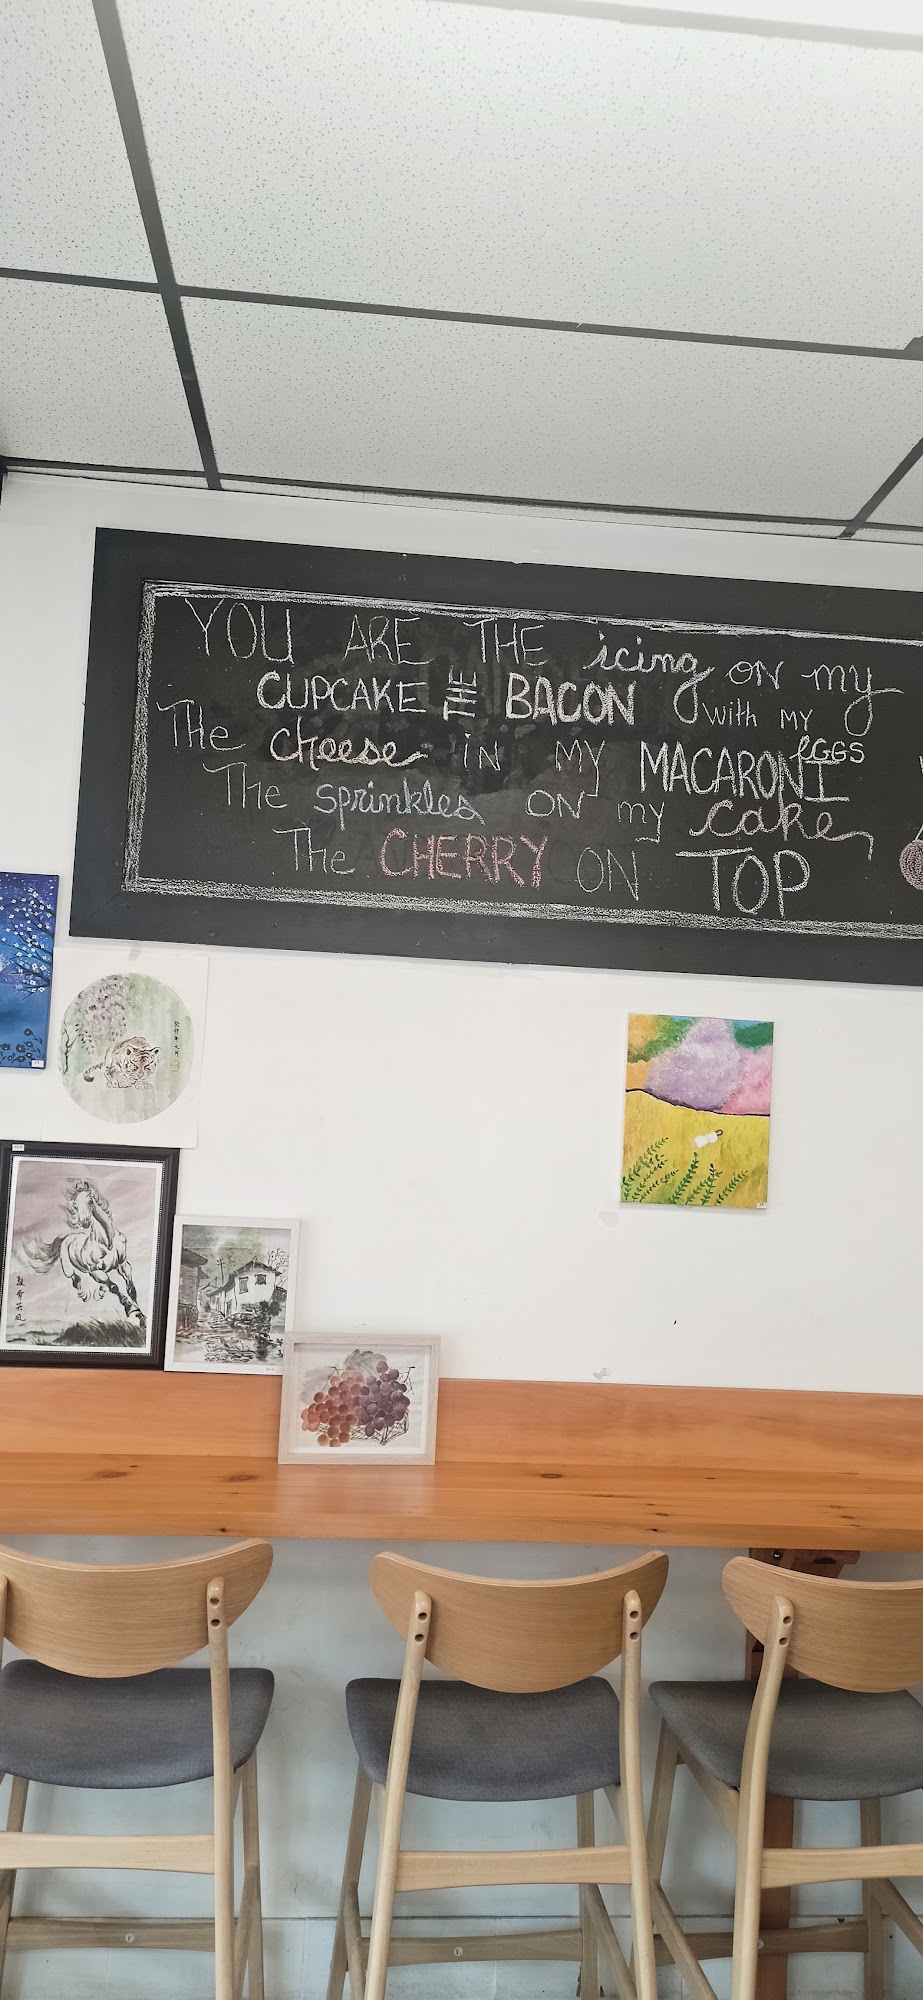 YOU ARE THE icing on my
CUPCAKE THE BACON with MY EGGS
The cheese in MY MACARONI
The sprinkles ON my cake,
The CHERRY ON TOP